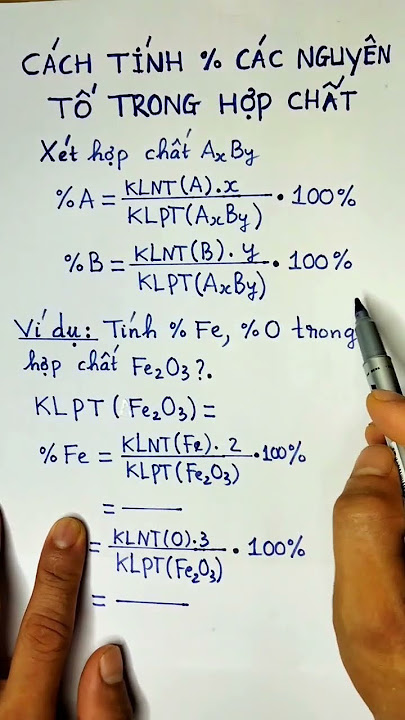 CÁCH TÍNH % CÁC NGUYÊN
TỐ TRONG HỢP CHẤT
Xét hợp chất AxBy
%A = KLNT(A).x / KLPT(AxBy) · 100%
%B = KLNT(B).y / KLPT(AxBy) · 100%
Ví dụ: Tính % Fe, %O trong
hợp chất Fe₂O₃?.
KLPT(Fe₂O₃) =
%Fe = KLNT(Fe).2 / KLPT(Fe₂O₃) · 100%
= ―
= KLNT(O).3 / KLPT(Fe₂O₃) · 100%
= ―